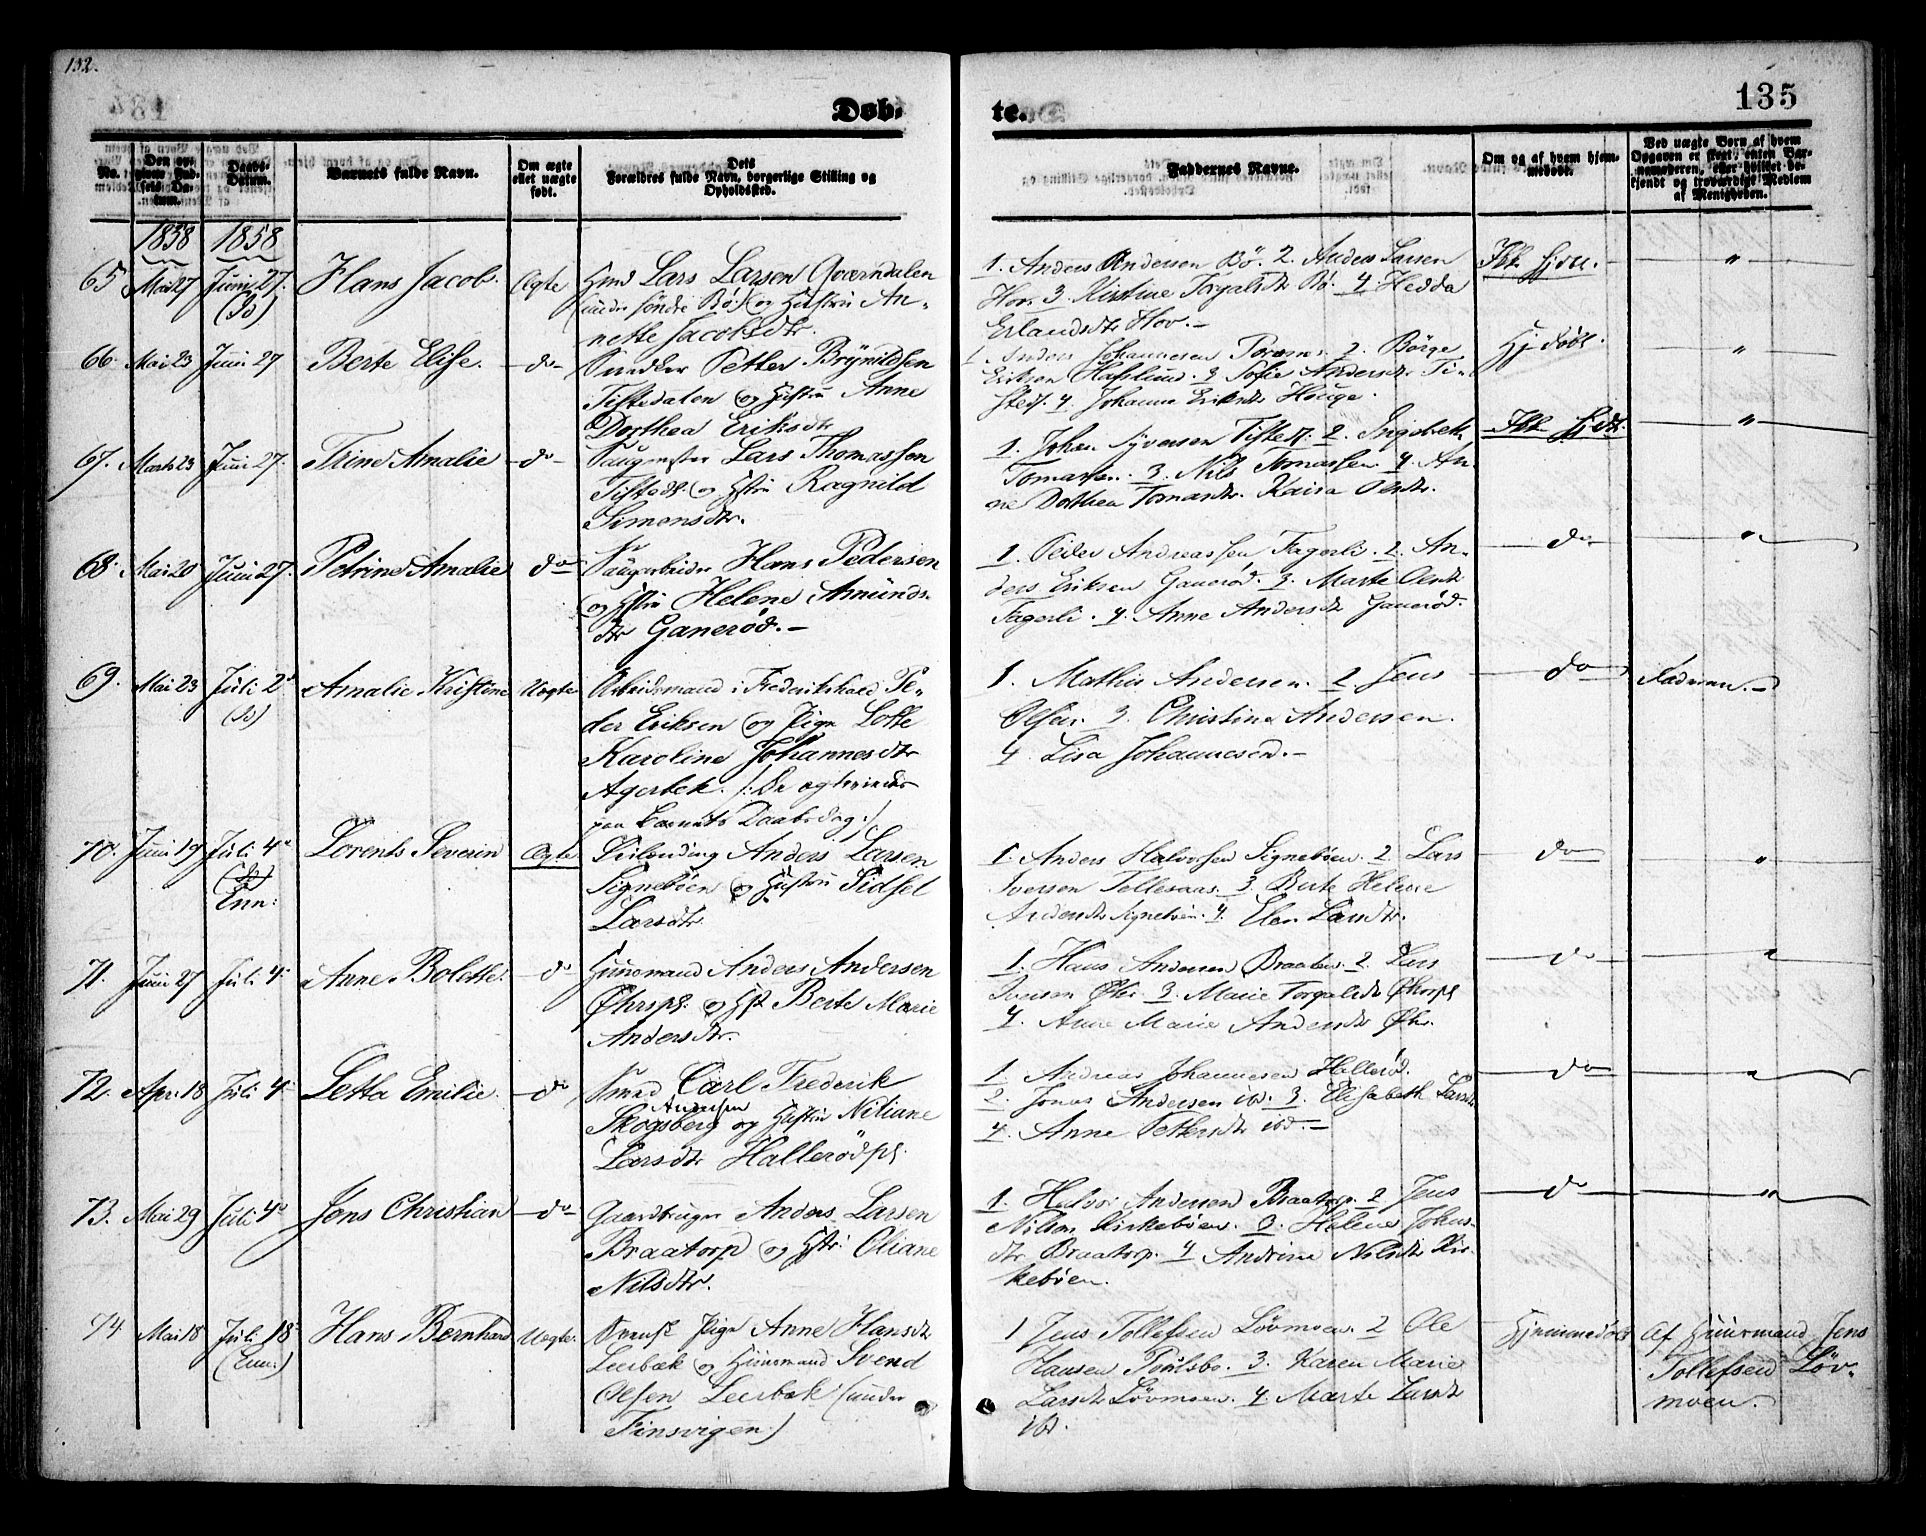 132.
135
Døb-
te.
No.
Den op-
givne Fød-
sels Da-
tum.
Daabs-
Datum.
Barnets fulde Navn.
Om ægte
ellet uægte
født.
Dets
Forældres fulde Navn, borgerlige Stilling og
Opholdssted.
Faddernes Navne.
Om og af hvem hjem-
medøbt.
Ved uægte Børn af hvem
Opgaven er skeet, enten Bar-
nemoderen, eller hvilket be-
kjendt og troværdigt Medlem
af Menigheden.
1858 1858
65 Mai 27 Juni 27. Hans Jacob. Ægte Hmd Lars Larsen Qværndalen
(So) (under søndre Bø) og Hustru An-
nette Jacobsdtr.
1. Anders Andersen Bø. 2. Anders Larsen
Hov. 3. Kirstine Torgalsdtr Bø. 4 Hedda
Erlandsdtr Hov.
Ikk Hjdt. "
66. Mai 23 Juni 27 Berte Elise. do Petter Brynildsen
Tistedalen og Hustru Anne
Dorthea Eriksdtr
1 Anders Johannesen 2. Børge
Eriksen Hafslund. 3 Sofie Andersdtr Ti-
sted. 4. Johanne Eriksdtr Houge.
Hj. døbt. "
67. Marts 23 Juni 27. Trine Amalie do Saugmester Lars Thomassen
Tistedt. og Hstru Ragnild
Simensdtr.
1. Johan Syversen Tisted. 2. Ingebret
Tomassen. 3. Nils Tomassen 4. An-
ne Dorthea Tomasdtr. Kaisa Olsdtr.
Ikk Hjdt. "
68. Mai 20 Juni 27. Petrine Amalie do Saugarbeider Hans Pedersen
og Hstru Helene Asmunds-
dtr Ganerød.
1. Peder Andreassen Fagerli. 2. An-
ders Eriksen Ganerød. 3. Marte Olsdtr
Fagerli. 4. Anne Andersdtr Ganerød.
do "
69. Mai 23 Juli 2d Amalie Kristine Uegte Arbeidsmand i Frederikshald Pe-
(So) der Eriksen og Pige Lotte
Karoline Johannesdtr
Agerbek. /: De
paa Barnets Daabsdag:/
1. Mathis Andersen. 2. Jens
Olsen. 3. Christine Andersen.
4. Lisa Johannesen.
do Faderen.
70. Juni 19 Juli 4d Lorents Severin Ægte Anders Larsen
(So) Signebøen og Hustru Sidsel
Enn: Larsdtr
1. Anders Halvorsen Signebøen. 2 Lars
Iversen Tollesaas. 3. Berte Helene
Andersdtr Signebøen. 4. Elen Larsdtr.
do "
71. Juni 27 Juli 4d Anne Bolette. do Huusmand Anders Andersen
Øhrspl. og Hst Berte Marie
Andersdtr.
1. Hans Andersen Braaten. 2. Lars
Iversen Øhr. 3. Marie Torgalsdtr Øhrspl
4. Anne Marie Andersdtr Øhr.
do "
72. Apr. 18 Juli 4d Letta Emilie. do Smed Carl Frederik
Andersen
Skogsberg og Hustru Niliane
Larsdtr Hallerødpl.
1. Andreas Johannesen Hallerød.
2. Jonas Andersen ibd. 3. Elisabeth Larsdtr
4. Anne Pettersdtr ibd.
do "
73. Mai 29 Juli 4d Jens Christian do Gaardbruger Anders Larsen
Braatorp og Hstr. Oliane
Nilsdtr.
1. Halvor Andersen Braatorp. 2 Jens
Nilsen Kirkebøen. 3. Helene Johns-
dtr Braatorp. 4 Andrine Nilsdtr Kir-
kebøen.
do "
74 Mai 18 Juli 18d Hans Bernhard Uegte Svensk Pige Anne Hansdtr
(Enn.) Leerbæk og Huusmand Svend
Olsen Leerbæk (under
Finsvigen)
1 Jens Tollefsen Løvmoen. 2 Ole
Hansen Poulsbo. 3. Karen Marie
Larsdtr Løvmoen. 4. Marte Larsdtr
ibd.
Hjemmedøbt Af Huusmand Jens
Tollefsen Løv-
moen.